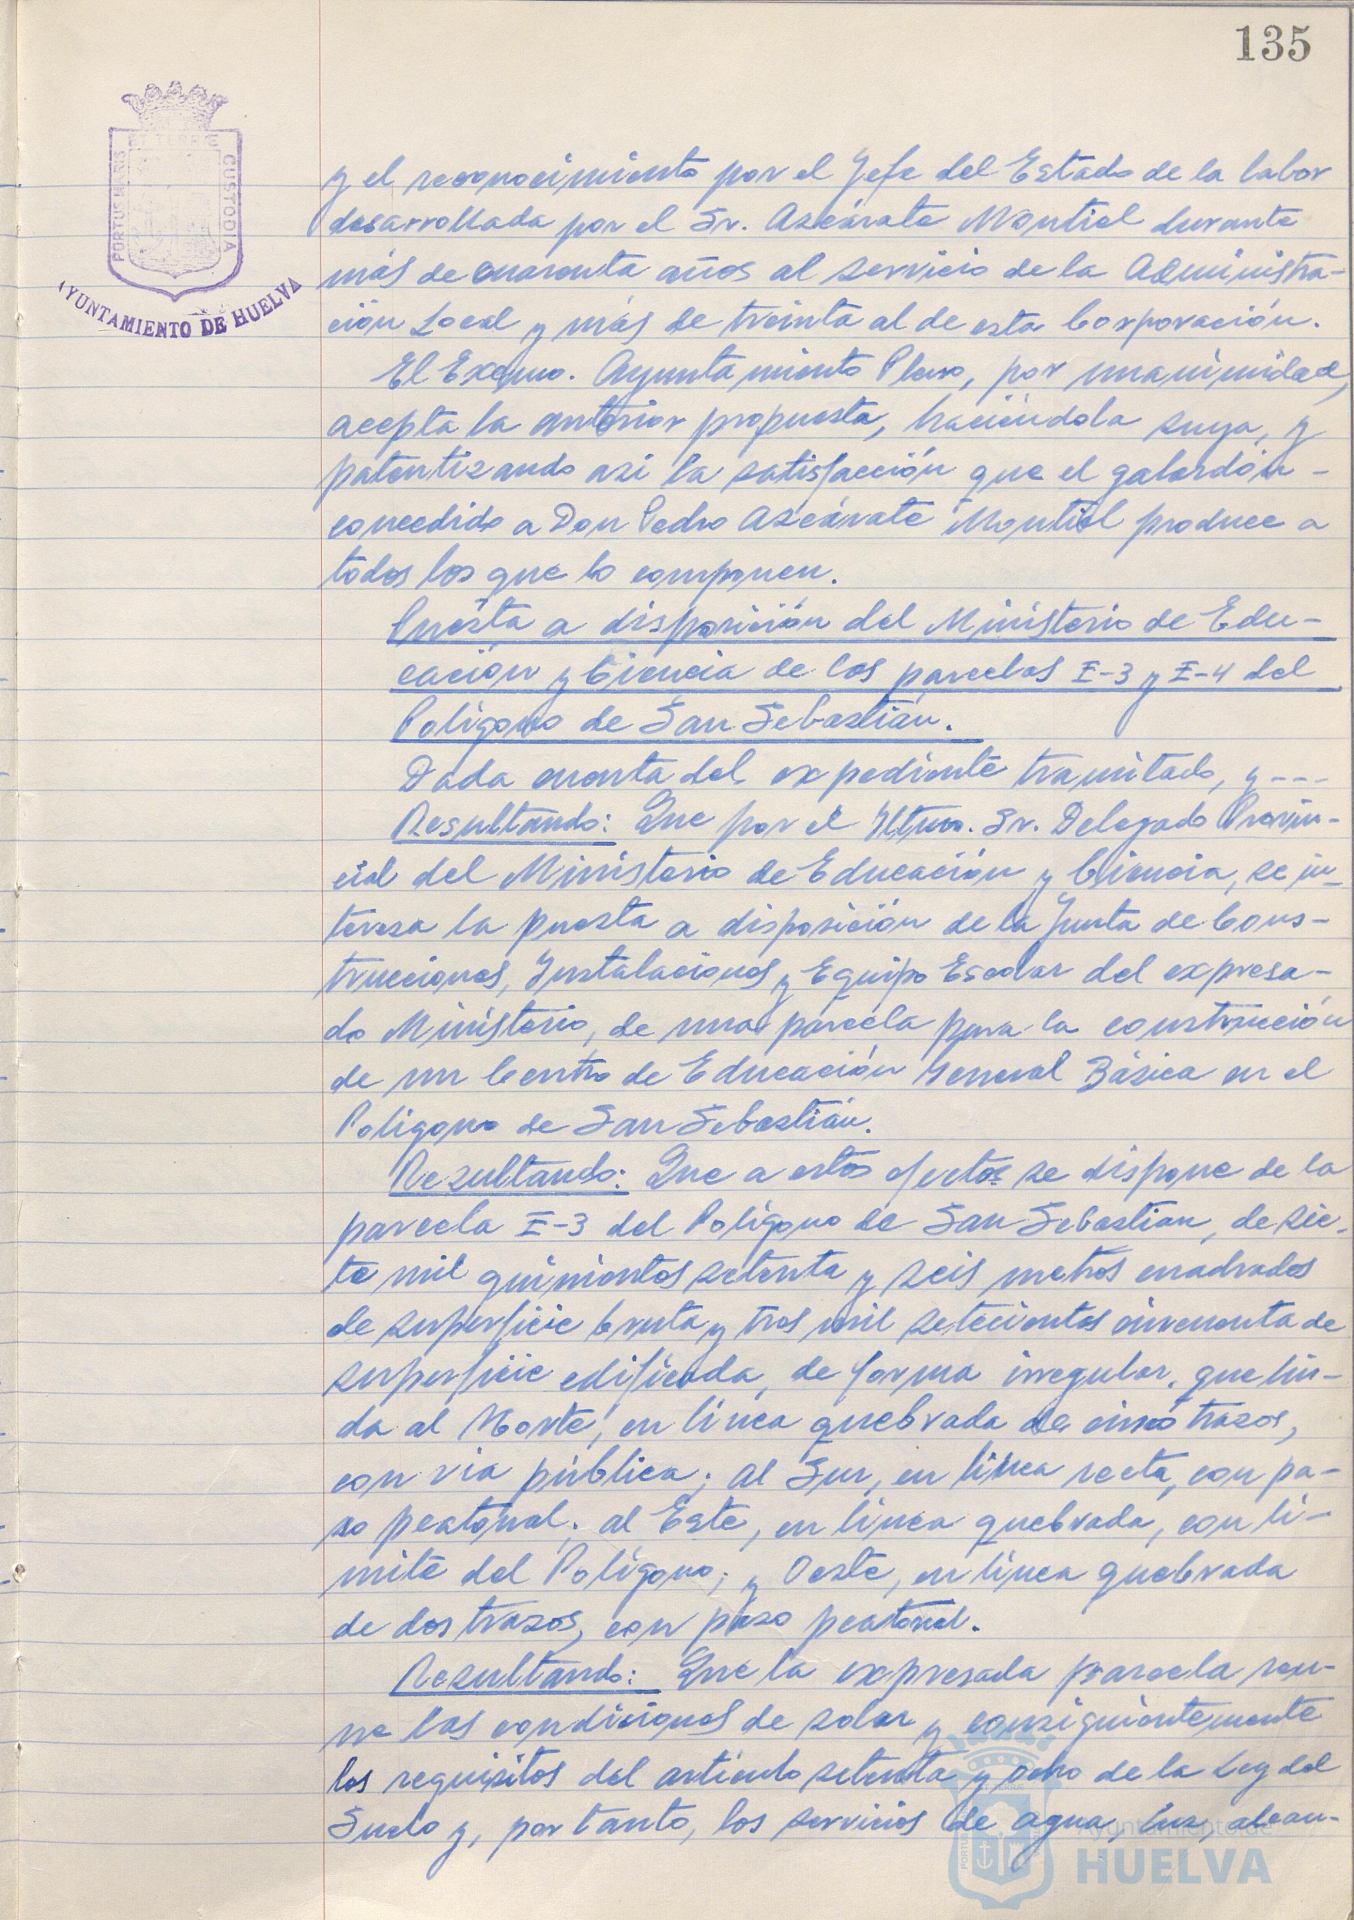 135
ET TERRE
PORTUS MARIS
CUSTODIA
AYUNTAMIENTO DE HUELVA
y el reconocimiento por el Jefe del Estado de la labor
desarrollada por el Sr. Azcárate Montiel durante
más de cuarenta años al servicio de la Administra-
ción Local y más de treinta al de esta Corporación.
El Excmo. Ayuntamiento Pleno, por unanimidad,
acepta la anterior propuesta, haciéndola suya, y
patentizando así la satisfacción que el galardón -
concedido a Don Pedro Azcárate Montiel produce a
todos los que lo componen.
Puesta a disposición del Ministerio de Edu-
cación y Ciencia de las parcelas E-3 y E-4 del
Polígono de San Sebastián.
Dada cuenta del expediente tramitado, y ---
Resultando: Que por el Iltmo. Sr. Delegado Provin-
cial del Ministerio de Educación y Ciencia, se in-
teresa la puesta a disposición de la Junta de Cons-
trucciones, Instalaciones y Equipo Escolar del expresa-
do Ministerio, de una parcela para la construcción
de un Centro de Educación General Básica en el
Polígono de San Sebastián.
Resultando: Que a estos efectos se dispone de la
parcela E-3 del Polígono de San Sebastian, de sie-
te mil quinientos setenta y seis metros cuadrados
de superficie bruta y tres mil setecientos cincuenta de
superficie edificada, de forma irregular, que lin-
da al Norte, en línea quebrada de cinco trazos,
con vía pública; al Sur, en línea recta, con pa-
so peatonal; al Este, en línea quebrada, con lí-
mite del Polígono; y Oeste, en línea quebrada
de dos trazos, con paso peatonal.
Resultando: Que la expresada parcela reu-
ne las condiciones de solar y consiguientemente
los requisitos del artículo setenta y ocho de la Ley del
Suelo y, por tanto, los servicios de agua, luz, alcan-
Ayuntamiento de
HUELVA